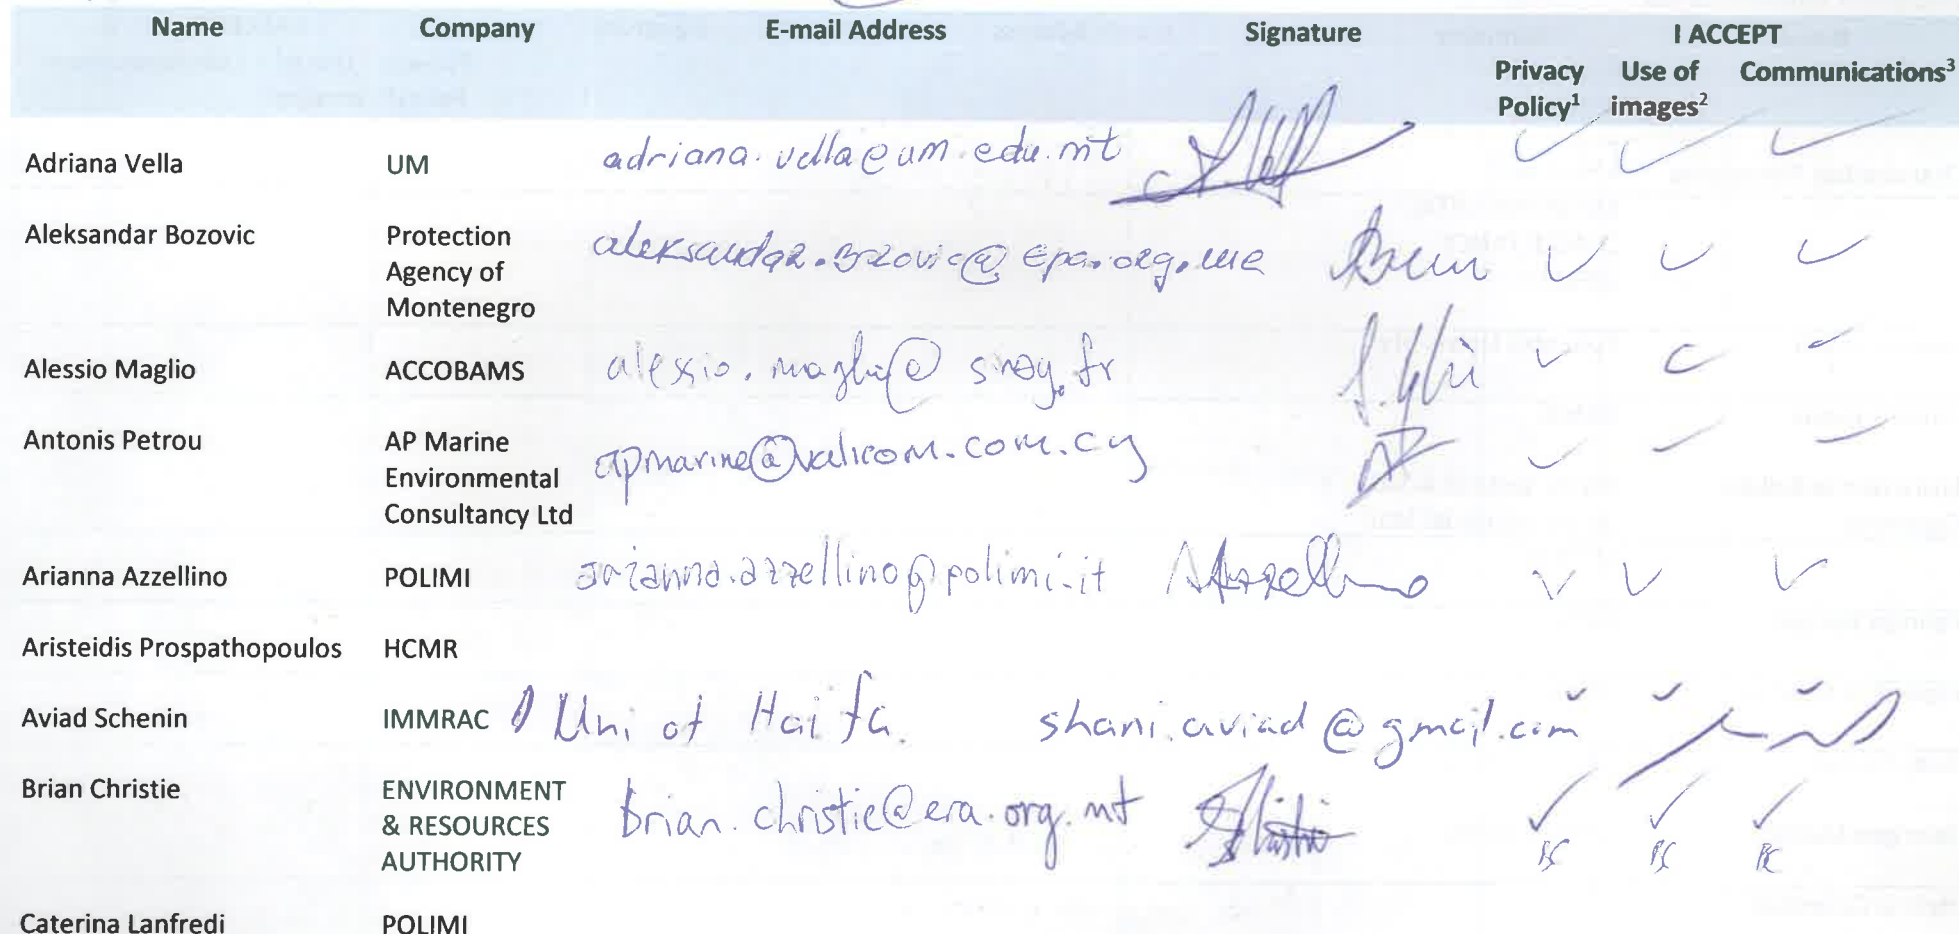 Name Company E-mail Address Signature I ACCEPT
Privacy Policy¹ Use of images² Communications³
Adriana Vella UM adriana.vella@um.edu.mt
Aleksandar Bozovic Protection Agency of Montenegro aleksandar.bozovic@epa.org.me
Alessio Maglio ACCOBAMS alessio.maglio@sinay.fr
Antonis Petrou AP Marine Environmental Consultancy Ltd
Arianna Azzellino POLIMI arianna.azzellino@polimi.it Azzellino
Aristeidis Prospathopoulos HCMR
Aviad Schenin IMMRAC / Uni of Haifa. shani.aviad@gmail.com
Brian Christie ENVIRONMENT & RESOURCES AUTHORITY brian.christie@era.org.mt BC BC BC
Caterina Lanfredi POLIMI